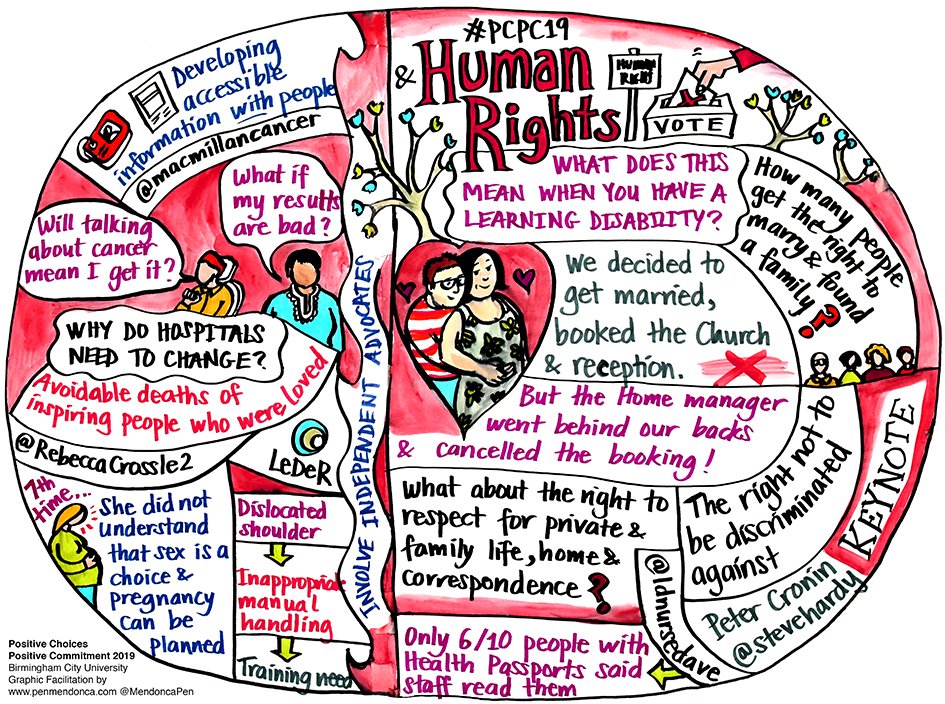 #PCPC19
& Human
Rights
HUMAN
RIGHT
VOTE
Developing
accessible
information with people
@macmillancancer
What if
my results
are bad?
Will talking
about cancer
mean I get it?
WHY DO HOSPITALS
NEED TO CHANGE?
Avoidable deaths of
inspiring people who were loved
@RebeccaCrossle2
LeDeR
7th
time...
She did not
understand
that sex is a
choice &
pregnancy
can be
planned
Dislocated
shoulder
Inappropriate
manual
handling
Training need
INVOLVE INDEPENDENT ADVOCATES
WHAT DOES THIS
MEAN WHEN YOU HAVE A
LEARNING DISABILITY?
How many people
get the right to
marry & found
a family?
We decided to
get married,
booked the Church
& reception.
But the Home manager
went behind our backs
& cancelled the booking!
What about the right to
respect for private &
family life, home &
correspondence?
The right not to
be discriminated
against
KEYNOTE
Peter Cronin
@stevehardy
@ldnursedave
Only 6/10 people with
Health Passports said
staff read them
Positive Choices
Positive Commitment 2019
Birmingham City University
Graphic Facilitation by
www.penmendonca.com @MendoncaPen